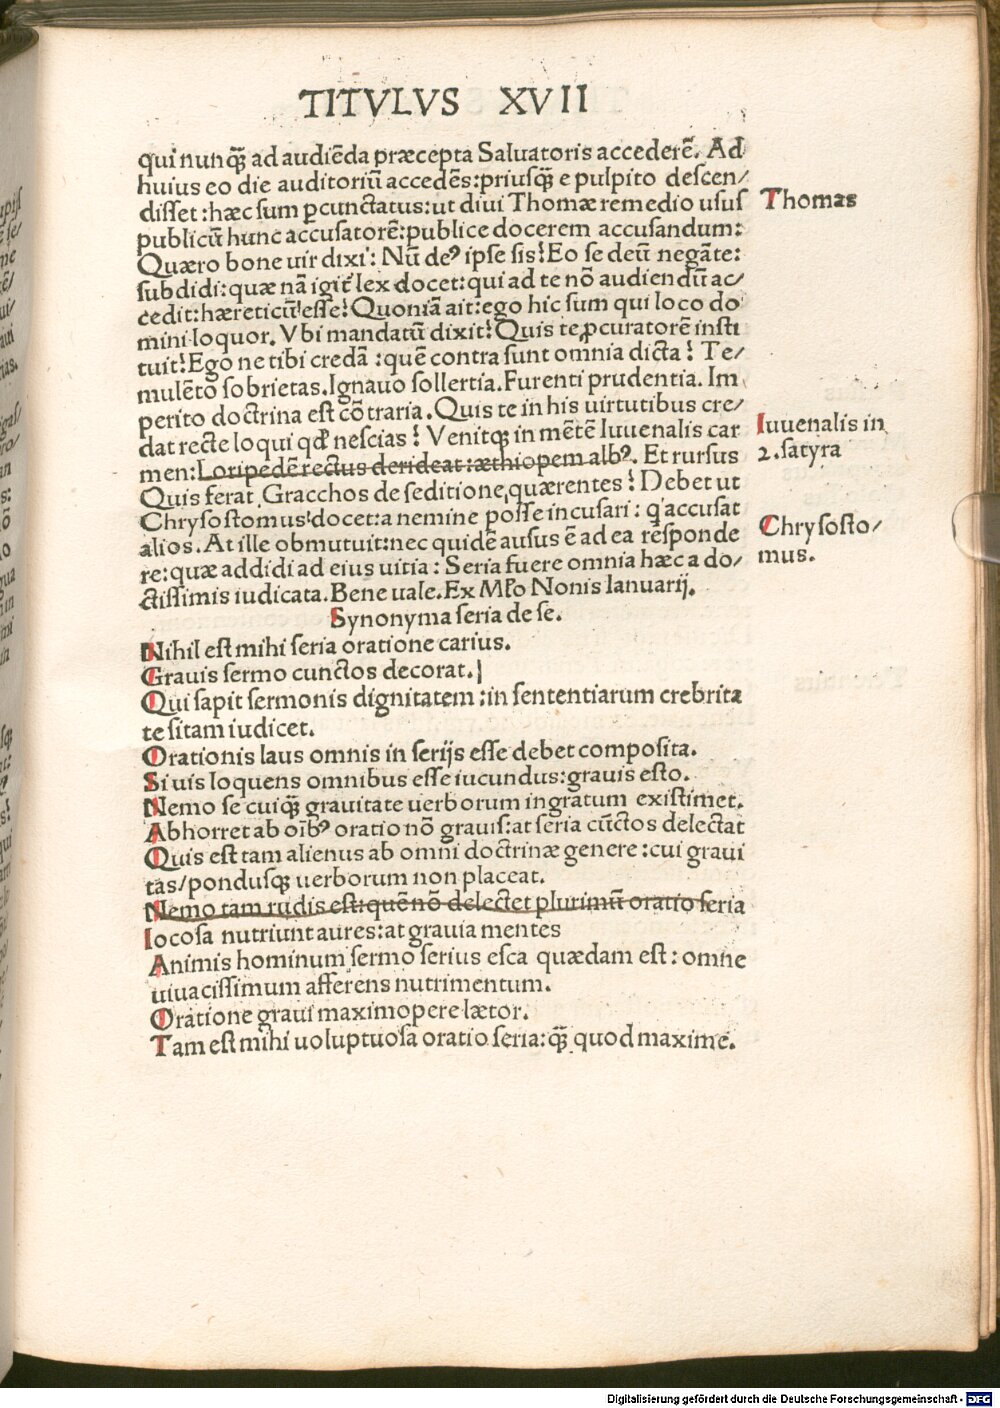 TITVLVS XVII
qui nunq̃ ad audiẽda præcepta Saluatoris accederẽ. Ad
huius eo die auditoriũ accedẽs:priusq̃ e pulpito descen/
disset:hæc sum ꝑcunctatus:ut diui Thomæ remedio usus
Thomas
publicũ hunc accusatorẽ:publice docerem accusandum:
Quæro bone uir dixi: Nũ deꝰ ipse sis? Eo se deũ negãte:
subdidi:quæ nã igit̃ lex docet:qui ad te nõ audiendũ ac/
cedit:hæreticũ esse? Quoniã ait:ego hic sum qui loco do
mini loquor. Vbi mandatũ dixit? Quis te ꝓcuratorẽ insti
tuit? Ego ne tibi credã:quẽ contra sunt omnia dicta? Te/
mulẽto sobrietas.Ignauo sollertia.Furenti prudentia. Im
perito doctrina est cõtraria.Quis te in his uirtutibus cre/
dat recte loqui qđ nescias? Venitqꝫ in mẽtẽ Iuuenalis car
Iuuenalis in
men:Loripedẽ rectus derideat:æthiopem albꝰ. Et rursus
2.satyra
Quis ferat Gracchos de seditione quærentes? Debet ut
Chrysostomus docet:a nemine posse incusari: q' accusat
Chrysosto/
alios.At ille obmutuit:nec quidẽ ausus ẽ ad ea respõde
mus.
re:quæ addidi ad eius uitia: Seria fuere omnia hæc a do/
ctissimis iudicata.Bene uale.Ex Mr̃o Nonis Ianuarij.
Synonyma seria de se.
Nihil est mihi seria oratione carius.
Grauis sermo cunctos decorat.
Qui sapit sermonis dignitatem:in sententiarum crebrita
te sitam iudicet.
Orationis laus omnis in serijs esse debet composita.
Si uis loquens omnibus esse iucundus:grauis esto.
Nemo se cuiq̃ grauitate uerborum ingratum existimet.
Abhorret ab oĩbꝰ oratio nõ grauis:at seria cũctos delectat
Quis est tam alienus ab omni doctrinæ genere:cui graui
tas/pondusqꝫ uerborum non placeat.
Nemo tam rudis est:quẽ nõ delectet plurimũ oratio seria
Iocosa nutriunt aures:at grauia mentes
Animis hominum sermo serius esca quædam est: omne
uiuacissimum afferens nutrimentum.
Oratione graui maximopere lætor.
Tam est mihi uoluptuosa oratio seria:q̃ quod maxime.
Digitalisierung gefördert durch die Deutsche Forschungsgemeinschaft - DFG